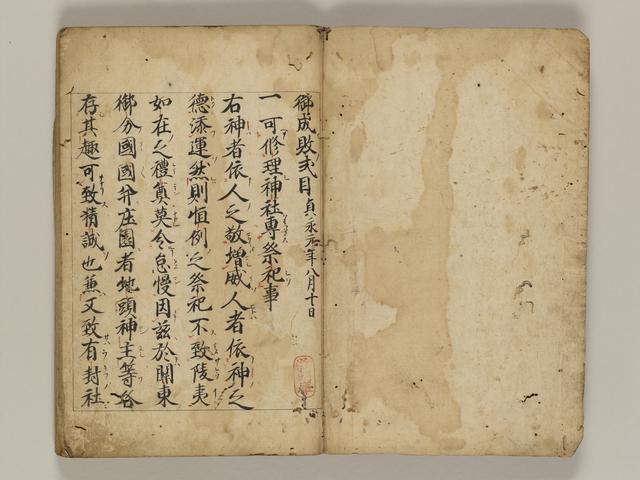 御成敗式目貞永元年八月十日
一可修理神社專祭祀事
右神者依人之敬増威人者依神之
德添運然則恒例之祭祀不致陵夷
如在之禮奠莫令怠慢因茲於関東
御分國國并庄園者地頭神主等各
存其趣可致精誠也兼又致有封社